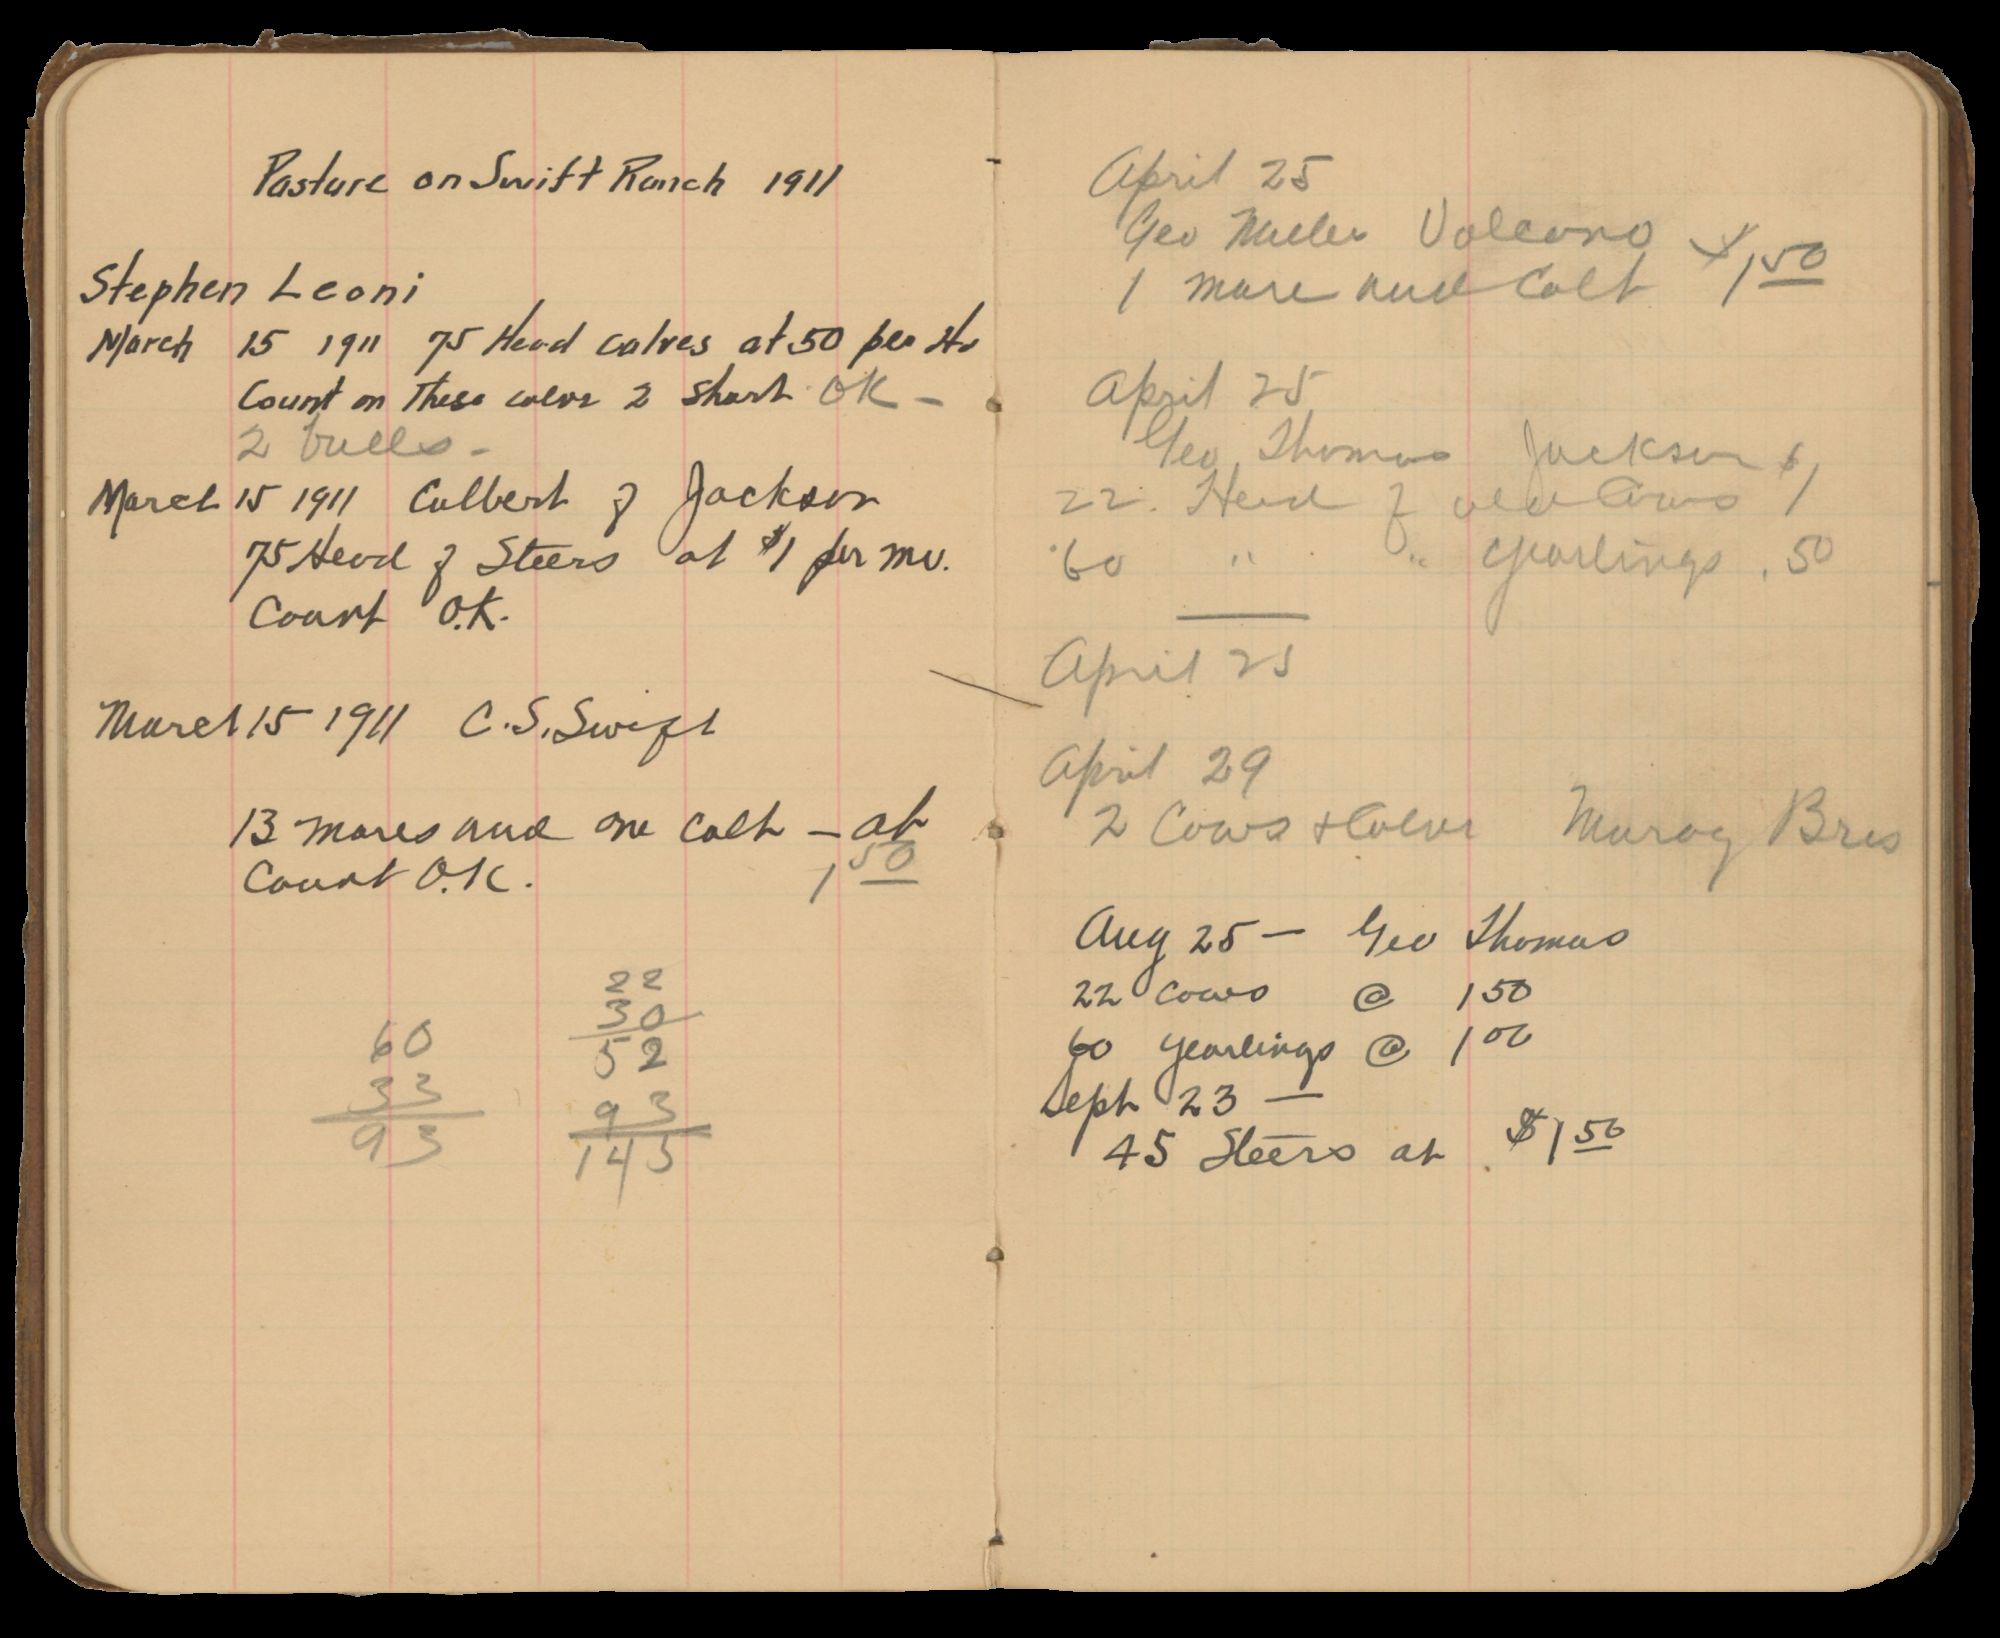 Pasture on Swift Ranch 1911
Stephen Leoni
March 15 1911 75 Head calves at 50 per Hd
Count on These calves 2 Short OK -
2 bulls -
March 15 1911 Culbert of Jackson
75 Head of Steers at $1 per mo.
Count O.K.
March 15 1911 C.S. Swift
13 mares and one Colt - at
Count O.K. 1 50
22
30
52
60
33
93
93
145
April 25
Geo Miller Volcano
1 mare and Colt $1 50
April 25
Geo Thomas Jackson
22. Head of Cows $1
60 " " yearlings .50
April 25
April 29
2 Cows + Calves Bros
Aug 25 - Geo Thomas
22 Cows @ 1 50
60 yearlings @ 1 00
Sept 23 -
45 Steers at $1 50